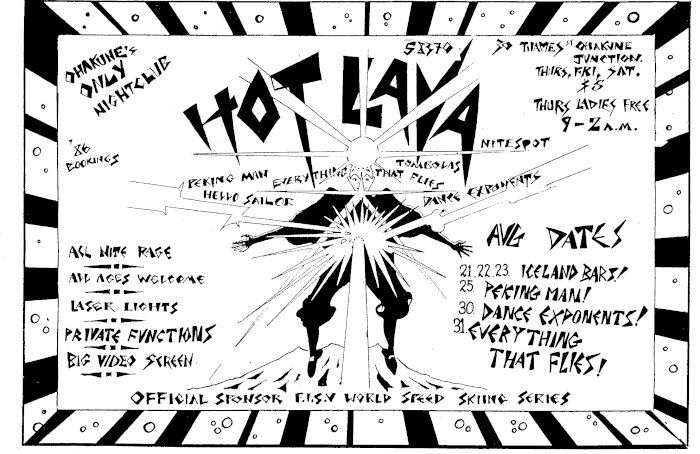 OHAKUNE'S
ONLY
NIGHTCLUB
58370
30 THAMES ST OHAKUNE
JUNCTION.
THURS, FRI, SAT.
$5
THURS LADIES FREE
9-2 A.M.
HOT LAVA
NITESPOT
'86
BOOKINGS
TOMBOLAS
PEKING MAN EVERYTHING THAT FLIES
HELLO SAILOR DANCE EXPONENTS
AVG DATES
21.22.23. ICELAND BARS!
25. PEKING MAN!
30. DANCE EXPONENTS!
31. EVERYTHING
THAT FLIES!
NITE RAGE
ALL AGES WELCOME
LASER LIGHTS
PRIVATE FUNCTIONS
BIG VIDEO SCREEN
OFFICIAL SPONSOR WORLD SPEED SKIING SERIES